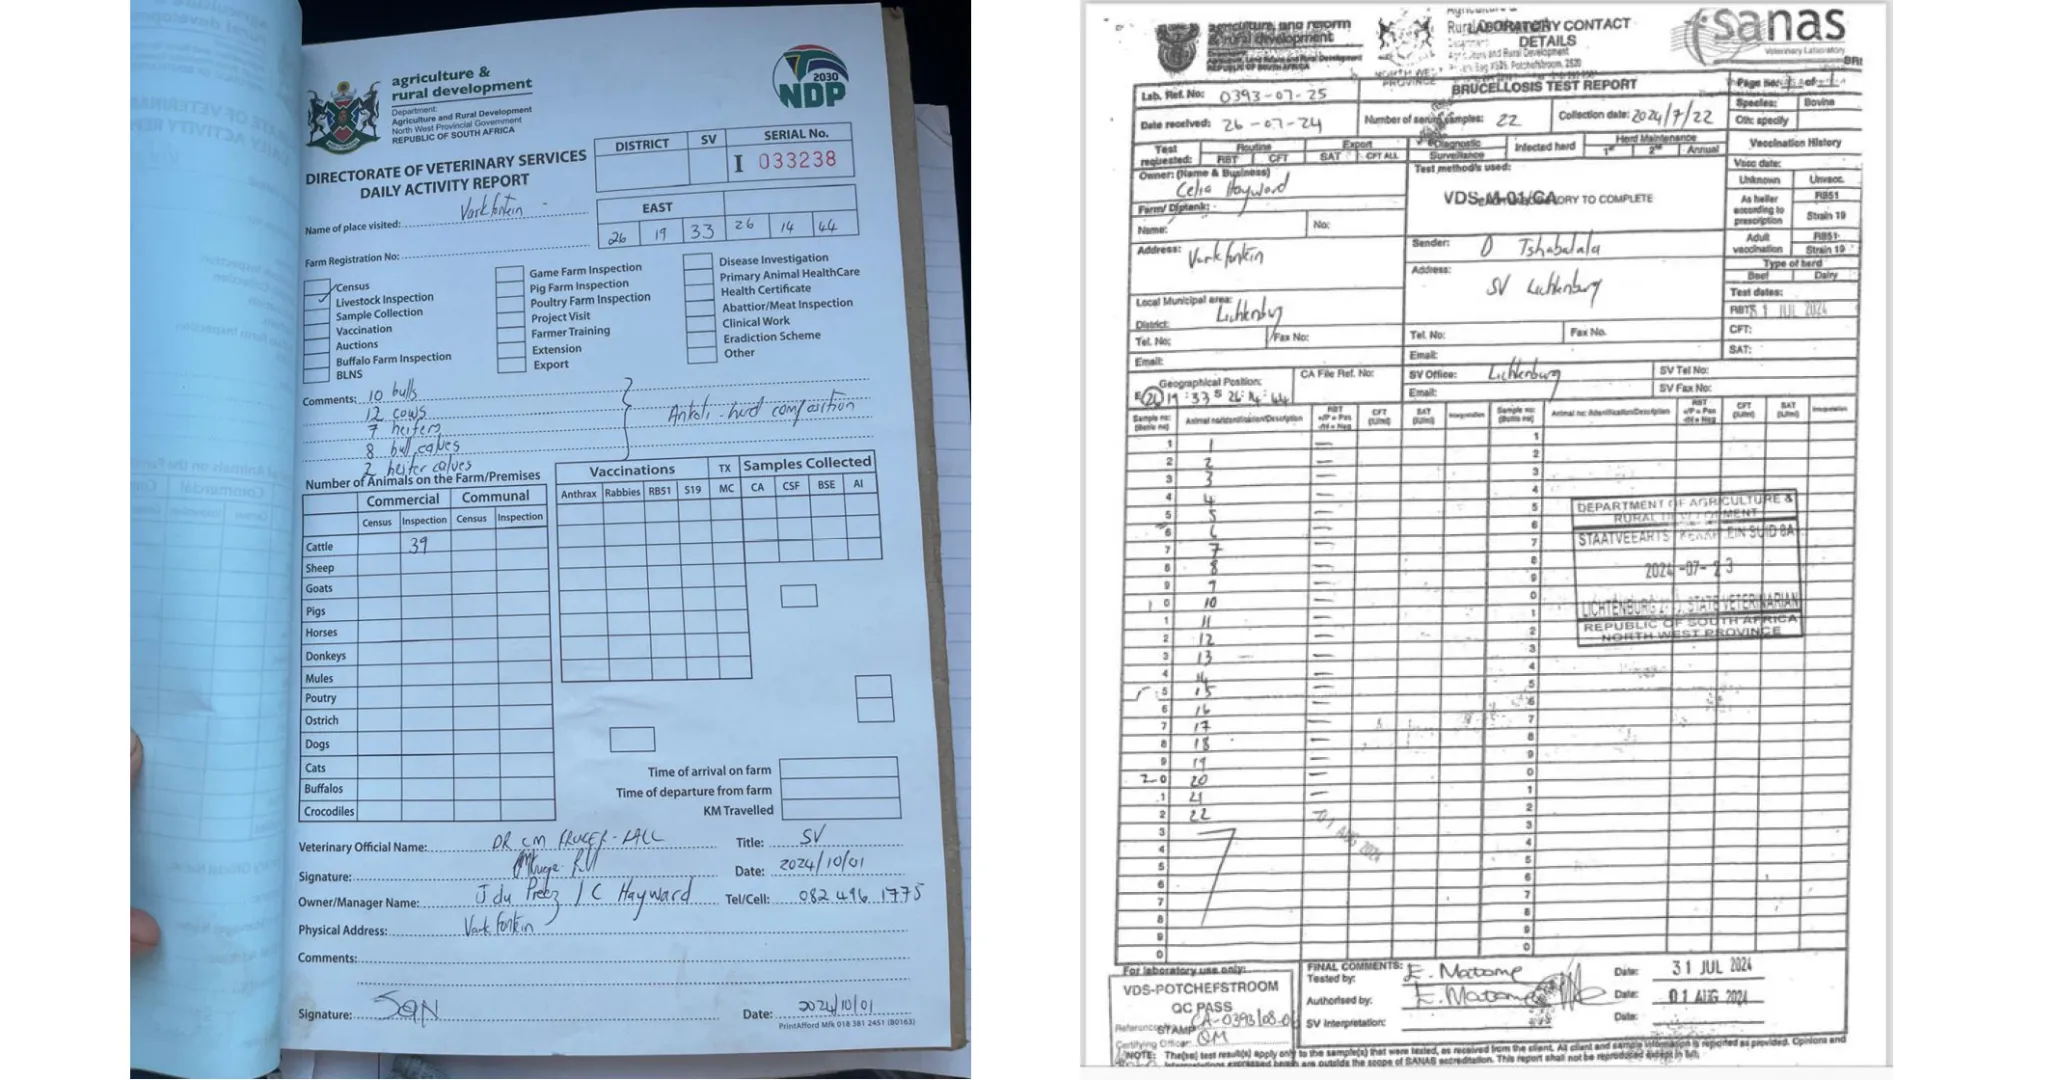 agriculture &
rural development
Department:
Agriculture and Rural Development
North West Provincial Government
REPUBLIC OF SOUTH AFRICA
2030
NDP
DIRECTORATE OF VETERINARY SERVICES
DAILY ACTIVITY REPORT
DISTRICT SV SERIAL No.
I 033238
Name of place visited: Varkfontein
EAST
26 19 33 26 14 44
Farm Registration No:
Census
Livestock Inspection
Sample Collection
Vaccination
Auctions
Buffalo Farm Inspection
BLNS
Game Farm Inspection
Pig Farm Inspection
Poultry Farm Inspection
Project Visit
Farmer Training
Extension
Export
Disease Investigation
Primary Animal HealthCare
Health Certificate
Abattior/Meat Inspection
Clinical Work
Eradiction Scheme
Other
Comments: 10 bulls
12 cows
7 heifers
8 bull calves
2 heifer calves
Ankoli - herd composition
Number of Animals on the Farm/Premises
Commercial Communal
Census Inspection Census Inspection
Cattle 39
Sheep
Goats
Pigs
Horses
Donkeys
Mules
Poutry
Ostrich
Dogs
Cats
Buffalos
Crocodiles
Vaccinations TX Samples Collected
Anthrax Rabbies RB51 S19 MC CA CSF BSE AI
Time of arrival on farm
Time of departure from farm
KM Travelled
Veterinary Official Name: DR CM KRUGER-LALL Title: SV
Signature: Date: 2024/10/01
Owner/Manager Name: J du Preez / C Hayward Tel/Cell: 082 496 1775
Physical Address: Varkfontein
Comments:
Signature: Date: 2024/10/01
PrintAfford Mfk 018 381 2451 (B0163)
agriculture, land reform
& rural development
REPUBLIC OF SOUTH AFRICA
NORTH WEST
PROVINCE
LABORATORY CONTACT
DETAILS
Potchefstroom, 2520
sanas
Veterinary Laboratory
Lab. Ref. No: 0393-07-25
BRUCELLOSIS TEST REPORT
Page no: 1 of 1
Date received: 26-07-24
Number of serum samples: 22
Collection date: 2024/7/22
Species: Bovine
Oth: specify
Test requested:
Routine
RBT CFT
Export
SAT CFT ALL
Diagnostic
Surveillance
Infected herd
Herd Maintenance
1st 2nd Annual
Vaccination History
Vacc date:
Unknown Unvacc.
As heifer according to prescription
RB51
Strain 19
Adult vaccination
RB51
Strain 19
Type of herd
Beef Dairy
Test dates:
RBT: 31 JUL 2024
CFT:
SAT:
Owner: (Name & Business)
Celia Hayward
Farm/ Diptank:
Name: No:
Address: Varkfontein
Local Municipal area:
Lichtenburg
District:
Tel. No: Fax No:
Email:
Test method/s used:
LABORATORY TO COMPLETE
Sender: O Tshabalala
Address: SV Lichtenburg
Tel. No: Fax No.
Email:
Geographical Position:
E 26 19 :33 S 26: 14 : 44
CA File Ref. No:
SV Office: Lichtenburg
Email:
SV Tel No:
SV Fax No:
1 1 —
2 2 —
3 3 —
4 4 —
5 5 —
6 6 —
7 7 —
8 8 —
9 9 —
10 10 —
1 11 —
2 12 —
3 13 —
4 14 —
5 15 —
6 16 —
7 17 —
8 18 —
9 19 —
20 20 —
1 21 —
2 22 —
01 AUG 2024
DEPARTMENT OF AGRICULTURE &
RURAL DEVELOPMENT
2024 -07- 23
LICHTENBURG STATE VETERINARIAN
REPUBLIC OF SOUTH AFRICA
NORTH WEST PROVINCE
For laboratory use only:
VDS-POTCHEFSTROOM
QC PASS
STAMP
CA-0393/08-0
Certifying Officer: QM
FINAL COMMENTS:
Tested by: E. Matome Date: 31 JUL 2024
Authorised by: E. Matome Date: 01 AUG 2024
SV Interpretation: Date:
NOTE: The(se) test result(s) apply only to the sample(s) that were tested, as received from the client. All client and sample information is reported as provided. Opinions and
interpretations expressed herein are outside the scope of SANAS accreditation. This report shall not be reproduced except in full.